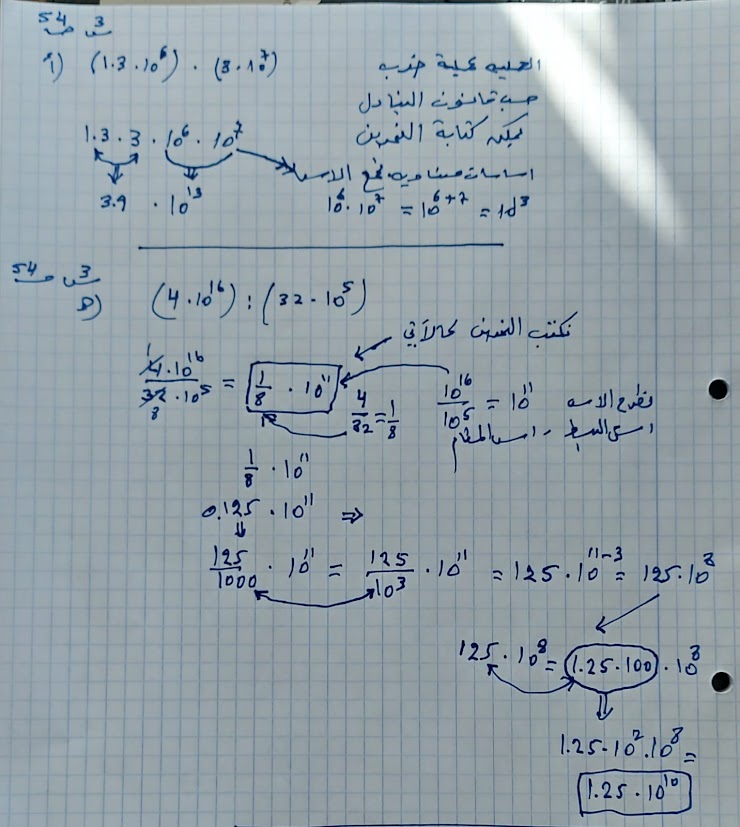 س 3 ص 54
أ) (1.3 · 10⁶) · (3 · 10⁷)
العملية عملية ضرب
حسب قانون التبادل
يمكن كتابة التمرين
1.3 · 3 · 10⁶ · 10⁷
اساسات متساوية نجمع الاسس
3.9 · 10¹³
10⁶ · 10⁷ = 10⁶⁺⁷ = 10¹³
س 3 ص 54
(4 · 10¹⁶) : (32 · 10⁵)
نكتب التمرين كالآتي
4 · 10¹⁶ / 32 · 10⁵ = 1/8 · 10¹¹
1 8
4/32 = 1/8
10¹⁶/10⁵ = 10¹¹
نطرح الاسس
اس البسط - اس المقام
1/8 · 10¹¹
0.125 · 10¹¹ ⇒
125/1000 · 10¹¹ = 125/10³ · 10¹¹ = 125 · 10¹¹⁻³ = 125 · 10⁸
125 · 10⁸ = 1.25 · 100 · 10⁸
1.25 · 10² · 10⁸ =
1.25 · 10¹⁰